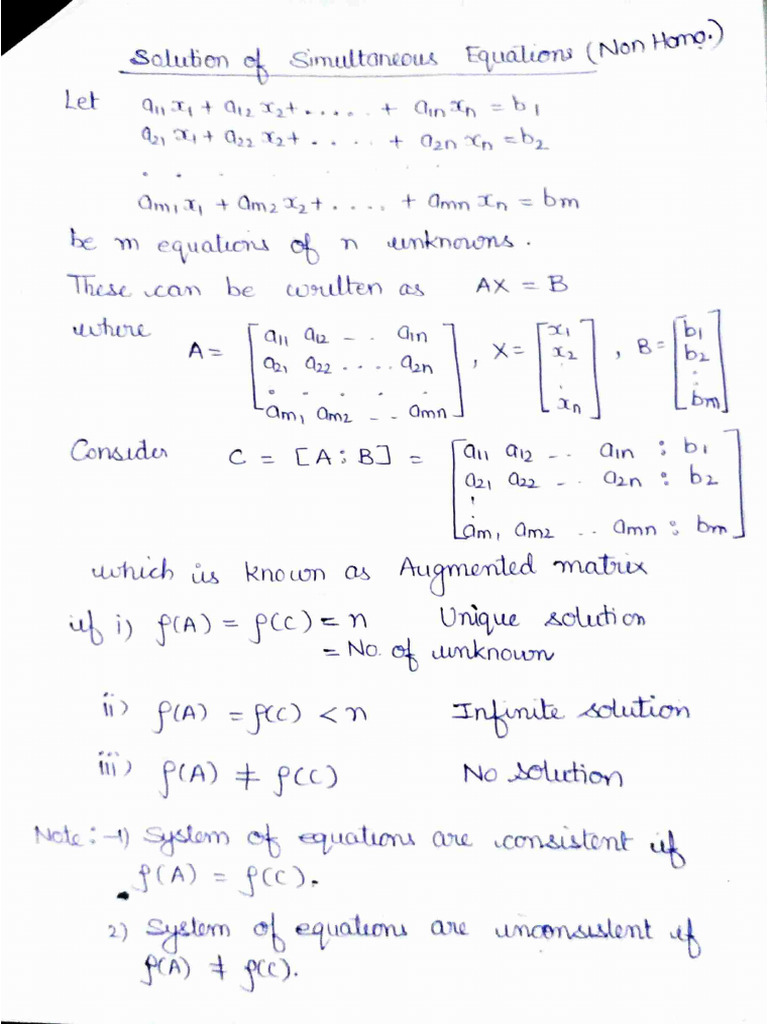 Solution of Simultaneous Equations (Non Homo.)
Let a11 x1 + a12 x2 + ..... + a1n xn = b1
a21 x1 + a22 x2 + ..... + a2n xn = b2
. . .
am1 x1 + am2 x2 + .... + amn xn = bm
be m equations of n unknowns.
These can be written as AX = B
where A = [a11 a12 -- a1n; a21 a22 .... a2n; . . . . .; am1 am2 -- amn], X = [x1; x2; :; xn], B = [b1; b2; :; bm]
Consider C = [A : B] = [a11 a12 -- a1n : b1; a21 a22 -- a2n : b2; :; am1 am2 .. amn : bm]
which is known as Augmented matrix
if i) ρ(A) = ρ(C) = n Unique solution
= No. of unknown
ii) ρ(A) = ρ(C) < n Infinite solution
iii) ρ(A) ≠ ρ(C) No solution
Note :- 1) System of equations are consistent if
ρ(A) = ρ(C).
2) System of equations are unconsistent if
ρ(A) ≠ ρ(C).